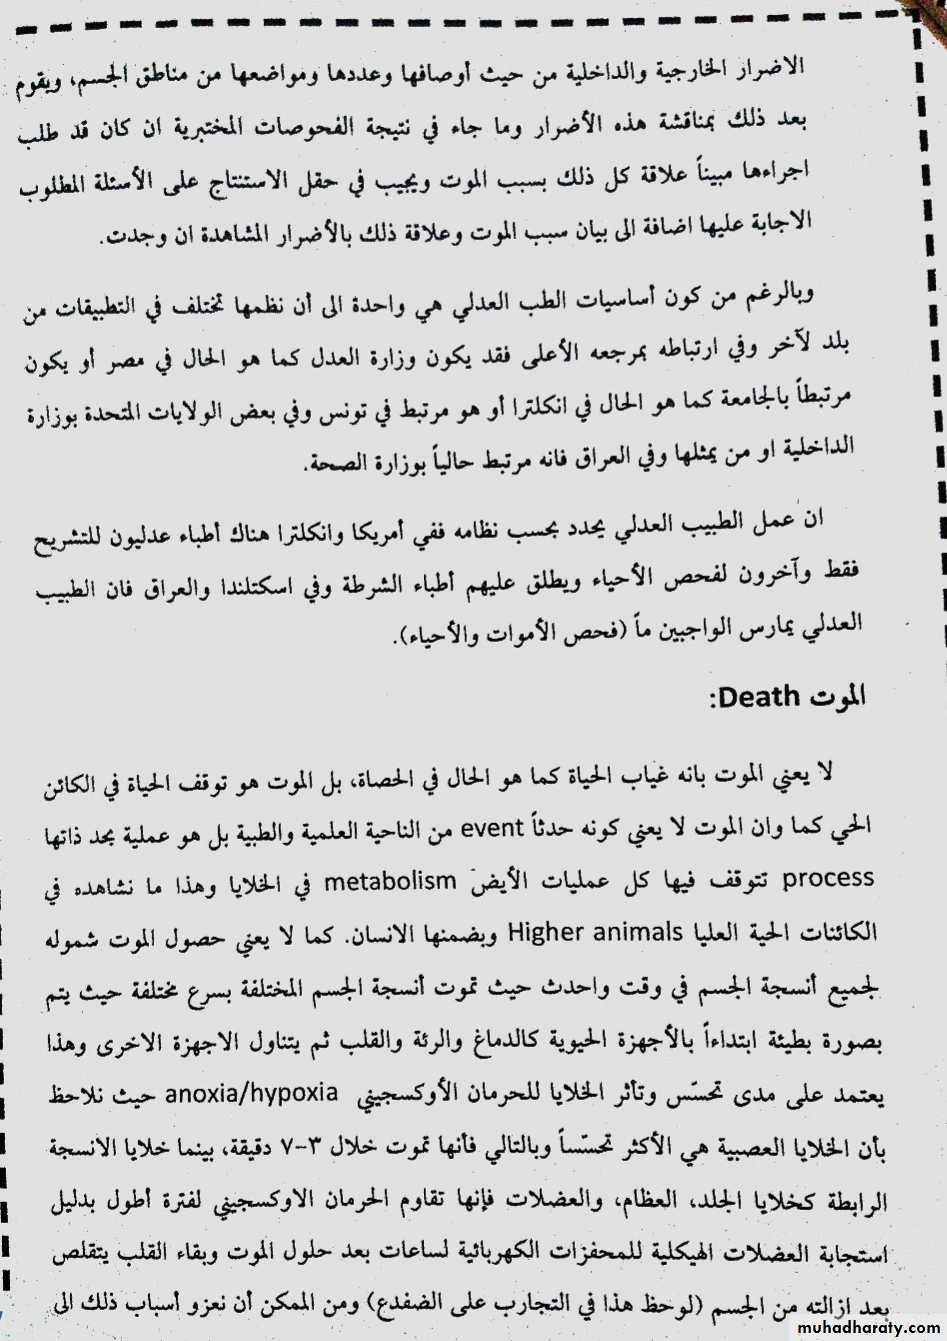 الاضرار الخارجية والداخلية من حيث أوصافها وعددها ومواضعها من مناطق الجسم، ويقوم
بعد ذلك بمناقشة هذه الأضرار وما جاء في نتيجة الفحوصات المختبرية ان كان قد طلب
اجراءها مبيناً علاقة كل ذلك بسبب الموت ويجيب في حقل الاستنتاج على الأسئلة المطلوب
الاجابة عليها اضافة الى بيان سبب الموت وعلاقة ذلك بالأضرار المشاهدة ان وجدت.
وبالرغم من كون أساسيات الطب العدلي هي واحدة الى أن نظمها تختلف في التطبيقات من
بلد لآخر وفي ارتباطه بمرجعه الأعلى فقد يكون وزارة العدل كما هو الحال في مصر أو يكون
مرتبطاً بالجامعة كما هو الحال في انكلترا أو هو مرتبط في تونس وفي بعض الولايات المتحدة بوزارة
الداخلية او من يمثلها وفي العراق فانه مرتبط حالياً بوزارة الصحة.
ان عمل الطبيب العدلي يحدد بحسب نظامه ففي أمريكا وانكلترا هناك أطباء عدليون للتشريح
فقط وآخرون لفحص الأحياء ويطلق عليهم أطباء الشرطة وفي اسكتلندا والعراق فان الطبيب
العدلي يمارس الواجبين ماً (فحص الأموات والأحياء).
الموت Death:
لا يعني الموت بانه غياب الحياة كما هو الحال في الحصاة، بل الموت هو توقف الحياة في الكائن
الحي كما وان الموت لا يعني كونه حدثاً event من الناحية العلمية والطبية بل هو عملية بحد ذاتها
process تتوقف فيها كل عمليات الأيض metabolism في الخلايا وهذا ما نشاهده في
الكائنات الحية العليا Higher animals وبضمنها الانسان. كما لا يعني حصول الموت شموله
لجميع أنسجة الجسم في وقت واحدث حيث تموت أنسجة الجسم المختلفة بسرع مختلفة حيث يتم
بصورة بطيئة ابتداءاً بالأجهزة الحيوية كالدماغ والرئة والقلب ثم يتناول الاجهزة الاخرى وهذا
يعتمد على مدى تحسّس وتأثر الخلايا للحرمان الأوكسجيني anoxia/hypoxia حيث نلاحظ
بأن الخلايا العصبية هي الأكثر تحسّساً وبالتالي فأنها تموت خلال ٣-٧ دقيقة، بينما خلايا الانسجة
الرابطة كخلايا الجلد، العظام، والعضلات فإنها تقاوم الحرمان الاوكسجيني لفترة أطول بدليل
استجابة العضلات الهيكلية للمحفزات الكهربائية لساعات بعد حلول الموت وبقاء القلب يتقلص
بعد ازالته من الجسم (لوحظ هذا في التجارب على الضفدع) ومن الممكن أن نعزو أسباب ذلك الى
muhadharaty.com